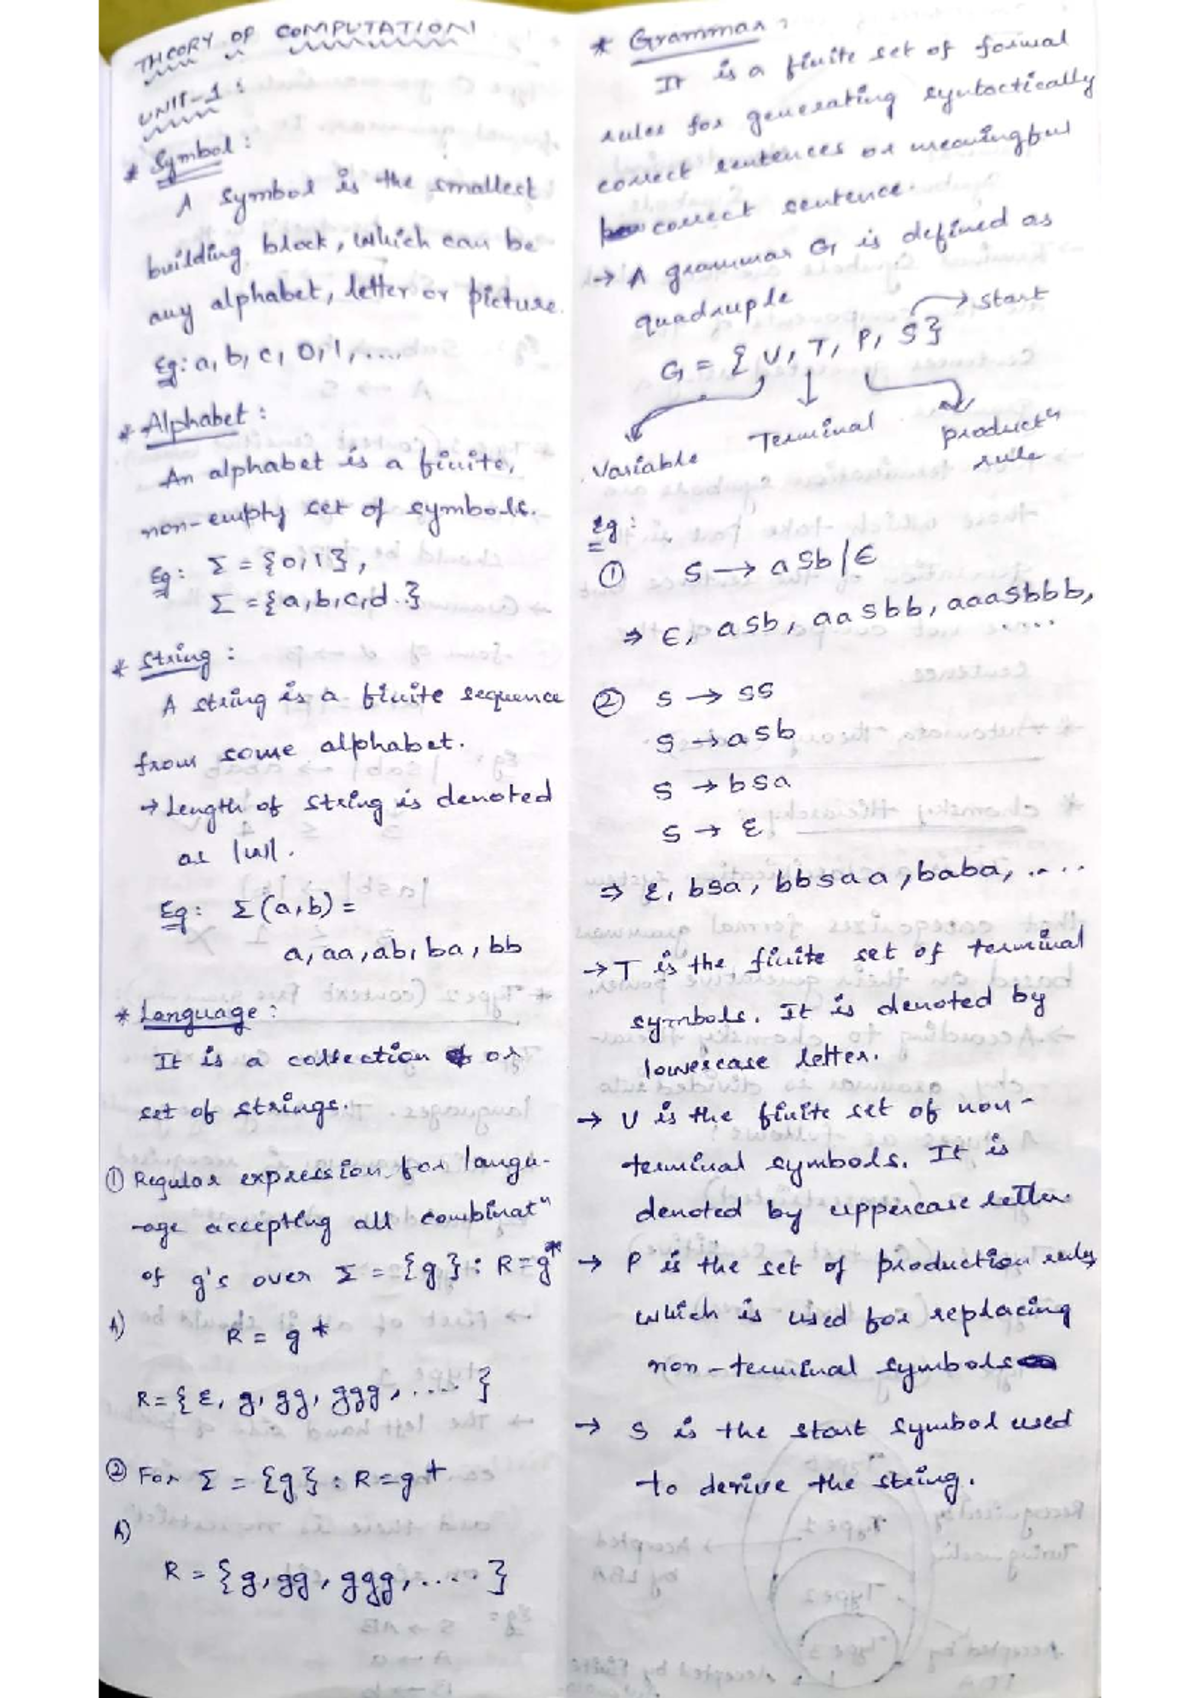 THEORY OF COMPUTATION
UNIT-1:
* Symbol:
A symbol is the smallest
building block, which can be
any alphabet, letter or picture.
Eg: a, b, c, 0, 1, ....
* Alphabet:
An alphabet is a finite,
non-empty set of symbols.
Eg: Σ = {0, 1},
Σ = {a, b, c, d ..}
* String:
A string is a finite sequence
from some alphabet.
→ Length of string is denoted
as |w|.
Eg: Σ(a, b) =
a, aa, ab, ba, bb
* Language:
It is a collection or
set of strings.
① Regular expression for langu-
-age accepting all combinatⁿ
of g's over Σ = {g}: R=g*
A)
R = g*
R = {ε, g, gg, ggg, .... }
② For Σ = {g} : R=g+
A)
R = {g, gg, ggg, .... }
* Grammar:
It is a finite set of formal
rules for generating syntactically
correct sentences or meaningful
correct sentence.
→ A grammar G is defined as
quadruple
G = {V, T, P, S} → start
Variable Terminal productⁿ
rule
Eg:
① S → aSb/ε
⇒ ε, asb, aasbb, aaasbbb,
....
② S → SS
S → aSb
S → bsa
S → ε
⇒ ε, bsa, bbsaa, baba, ....
→ T is the finite set of terminal
symbols. It is denoted by
lowercase letter.
→ V is the finite set of non-
terminal symbols. It is
denoted by uppercase letter.
→ P is the set of production rules
which is used for replacing
non-terminal symbols
→ S is the start symbol used
to derive the string.